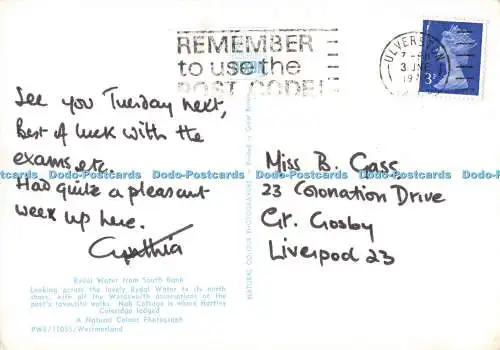 REMEMBER
to use the
POST CODE!
ULVERSTON
3 JNE
19
3P
See you Tuesday next,
Best of luck with the
exams, etc.
Had quite a pleasant
week up here.
Cynthia
Miss B. Gass
23 Coronation Drive
Gt. Crosby
Liverpool 23
Dodo-Postcards Dodo-Postcards Dodo-Postcards Dodo-Postcards Dodo-Postcards
NATURAL COLOUR PHOTOGRAPH
Rydal Water from South Bank
Looking across the lovely Rydal Water to its north
shore, with all the Wordsworth associations of the
poet's favourite walks. Nab Cottage is where Hartley
Coleridge lodged
A Natural Colour Photograph